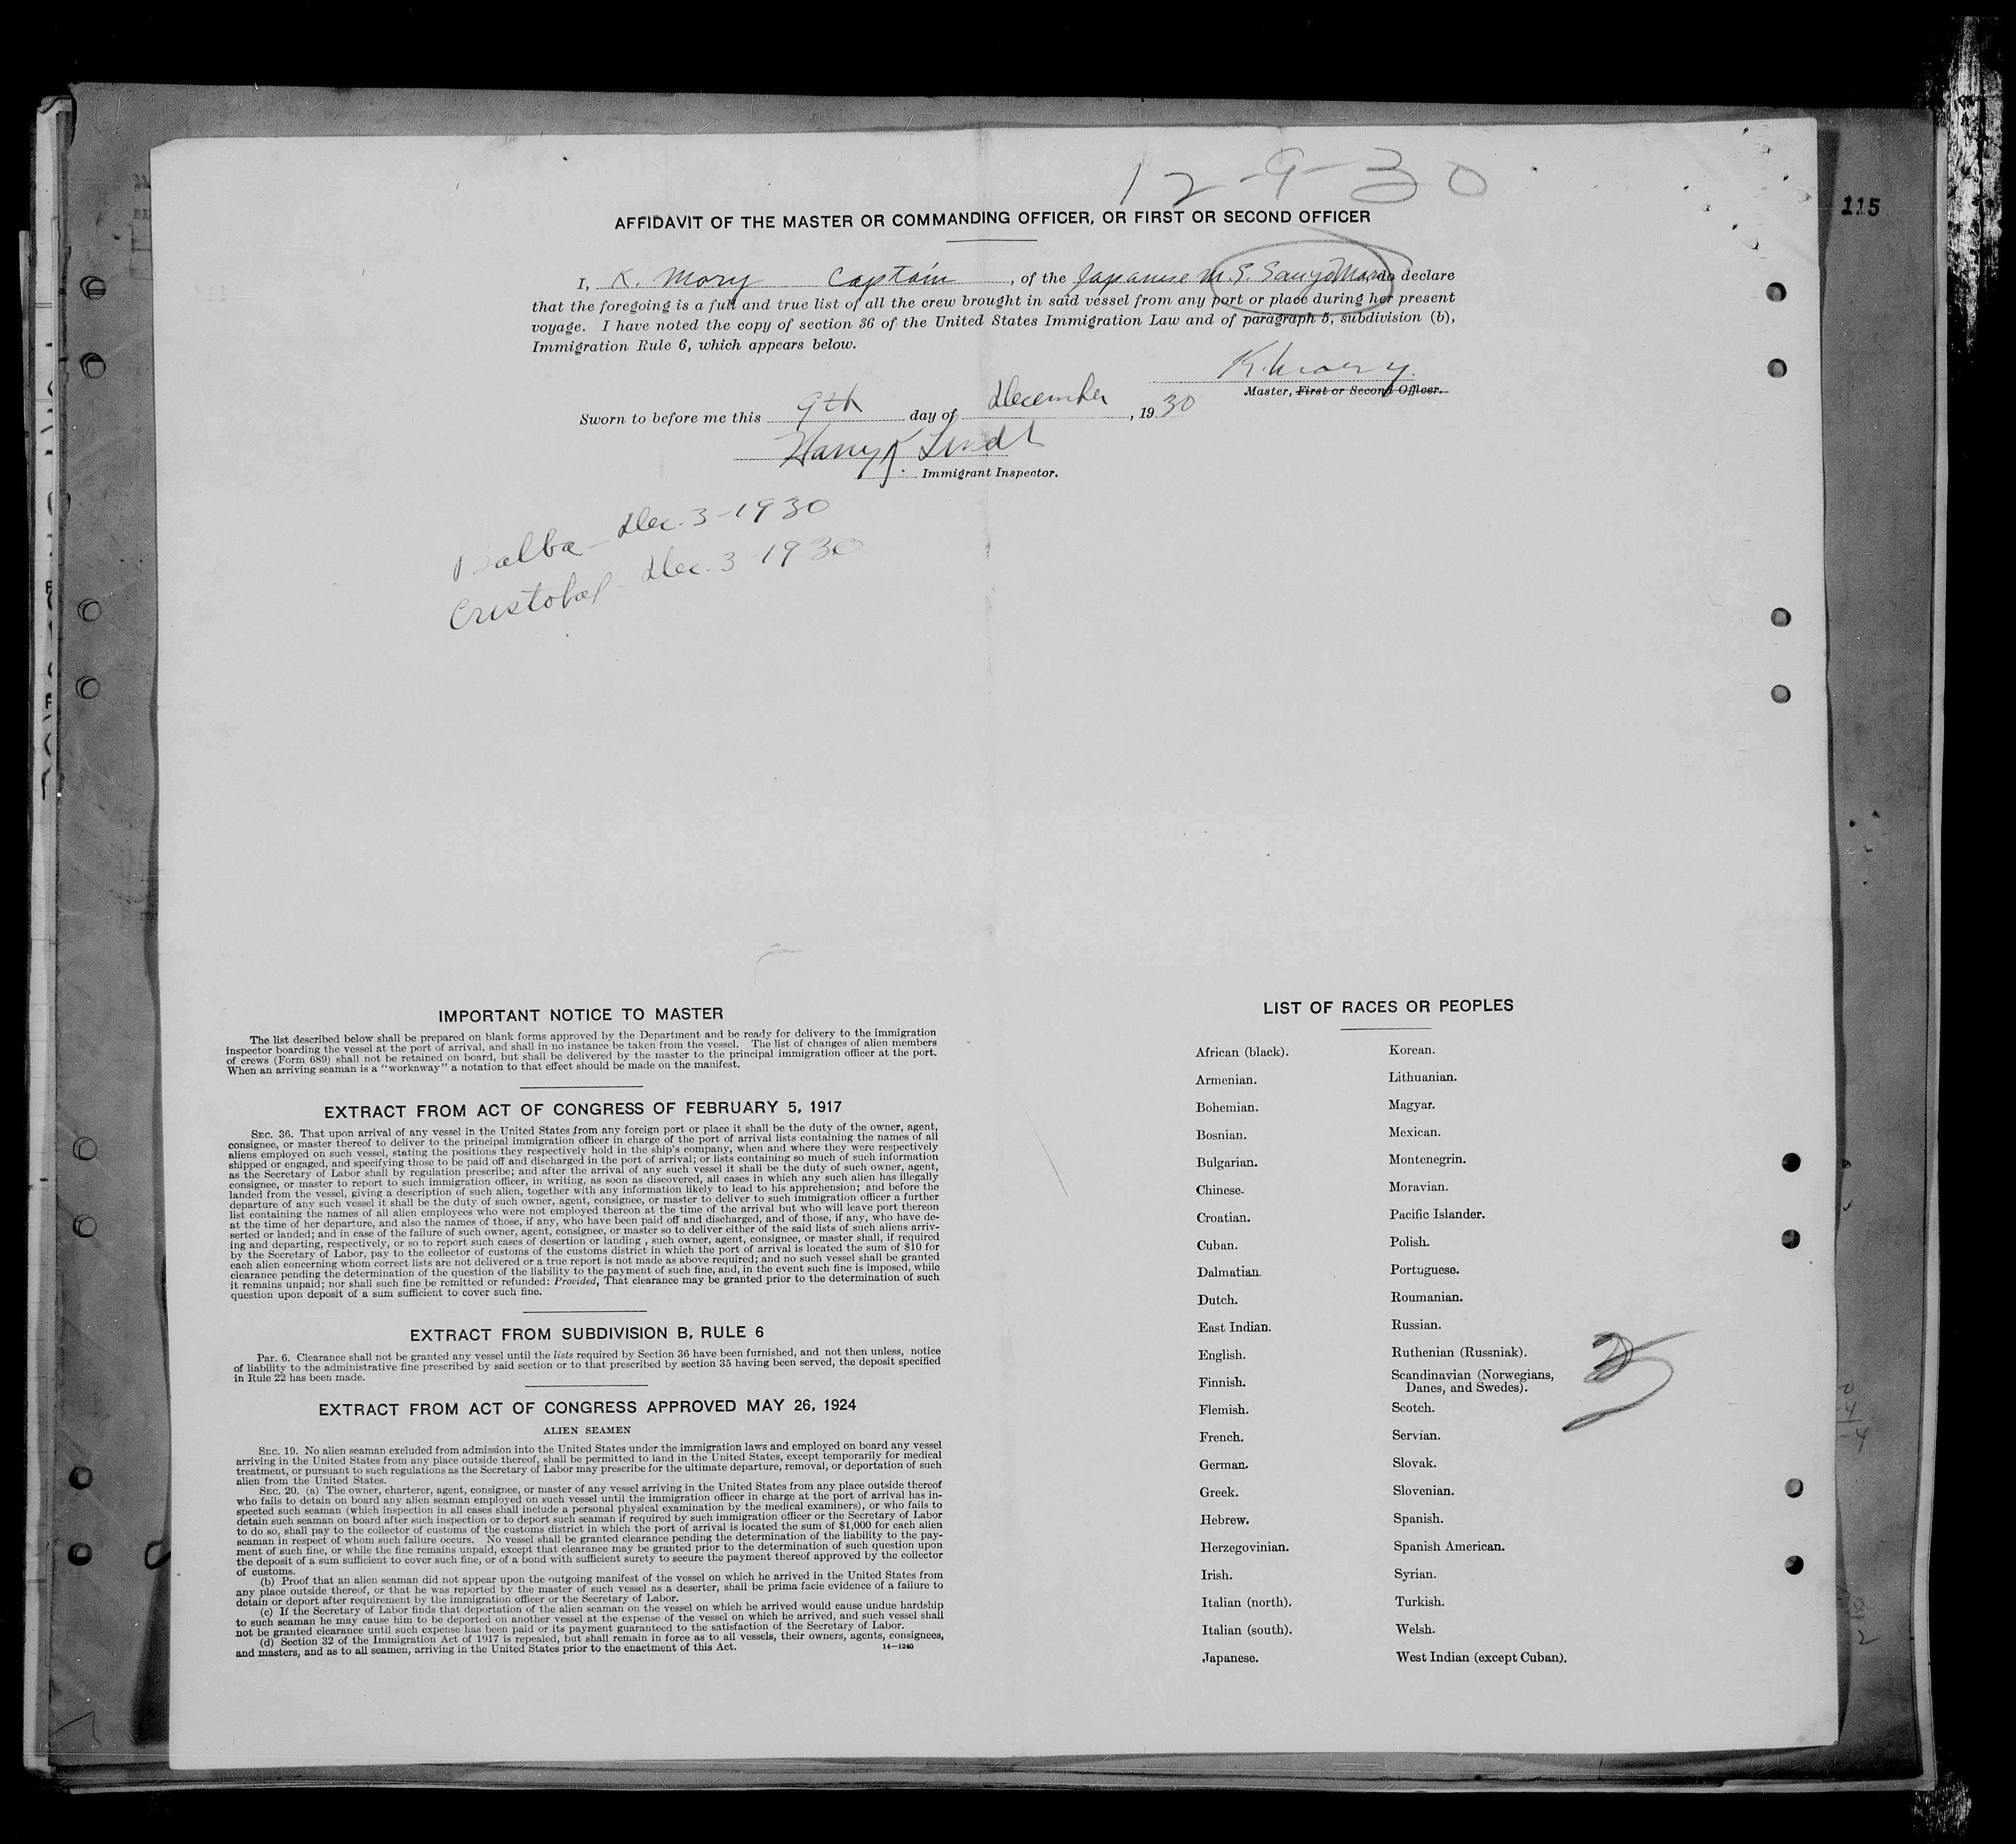 12-9-30
115
AFFIDAVIT OF THE MASTER OR COMMANDING OFFICER, OR FIRST OR SECOND OFFICER
I, K. Mory Captain, of the Japanese M.S. Sanyo Maru do declare
that the foregoing is a full and true list of all the crew brought in said vessel from any port or place during her present
voyage. I have noted the copy of section 36 of the United States Immigration Law and of paragraph 5, subdivision (b),
Immigration Rule 6, which appears below.
K. Mory.
Master, First or Second Officer.
Sworn to before me this 9th day of December, 1930
Harry Lindt
Immigrant Inspector.
Balboa - Dec. 3-1930
Cristobal - Dec. 3-1930
IMPORTANT NOTICE TO MASTER
The list described below shall be prepared on blank forms approved by the Department and be ready for delivery to the immigration
inspector boarding the vessel at the port of arrival, and shall in no instance be taken from the vessel. The list of changes of alien members
of crews (Form 689) shall not be retained on board, but shall be delivered by the master to the principal immigration officer at the port.
When an arriving seaman is a "workaway" a notation to that effect should be made on the manifest.
EXTRACT FROM ACT OF CONGRESS OF FEBRUARY 5, 1917
SEC. 36. That upon arrival of any vessel in the United States from any foreign port or place it shall be the duty of the owner, agent,
consignee, or master thereof to deliver to the principal immigration officer in charge of the port of arrival lists containing the names of all
aliens employed on such vessel, stating the positions they respectively hold in the ship's company, when and where they were respectively
shipped or engaged, and specifying those to be paid off and discharged in the port of arrival; or lists containing so much of such information
as the Secretary of Labor shall by regulation prescribe; and after the arrival of any such vessel it shall be the duty of such owner, agent,
consignee, or master to report to such immigration officer, in writing, as soon as discovered, all cases in which any such alien has illegally
landed from the vessel, giving a description of such alien, together with any information likely to lead to his apprehension; and before the
departure of any such vessel it shall be the duty of such owner, agent, consignee, or master to deliver to such immigration officer a further
list containing the names of all alien employees who were not employed thereon at the time of the arrival but who will leave port thereon
at the time of her departure, and also the names of those, if any, who have been paid off and discharged, and of those, if any, who have de-
serted or landed; and in case of the failure of such owner, agent, consignee, or master so to deliver either of the said lists of such aliens arriv-
ing and departing, respectively, or so to report such cases of desertion or landing, such owner, agent, consignee, or master shall, if required
by the Secretary of Labor, pay to the collector of customs of the customs district in which the port of arrival is located the sum of $10 for
each alien concerning whom correct lists are not delivered or a true report is not made as above required; and no such vessel shall be granted
clearance pending the determination of the question of the liability to the payment of such fine, and, in the event such fine is imposed, while
it remains unpaid; nor shall such fine be remitted or refunded: Provided, That clearance may be granted prior to the determination of such
question upon deposit of a sum sufficient to cover such fine.
EXTRACT FROM SUBDIVISION B, RULE 6
Par. 6. Clearance shall not be granted any vessel until the lists required by Section 36 have been furnished, and not then unless, notice
of liability to the administrative fine prescribed by said section or to that prescribed by section 35 having been served, the deposit specified
in Rule 22 has been made.
EXTRACT FROM ACT OF CONGRESS APPROVED MAY 26, 1924
ALIEN SEAMEN
SEC. 19. No alien seaman excluded from admission into the United States under the immigration laws and employed on board any vessel
arriving in the United States from any place outside thereof, shall be permitted to land in the United States, except temporarily for medical
treatment, or pursuant to such regulations as the Secretary of Labor may prescribe for the ultimate departure, removal, or deportation of such
alien from the United States.
SEC. 20. (a) The owner, charterer, agent, consignee, or master of any vessel arriving in the United States from any place outside thereof
who fails to detain on board any alien seaman employed on such vessel until the immigration officer in charge at the port of arrival has in-
spected such seaman (which inspection in all cases shall include a personal physical examination by the medical examiners), or who fails to
detain such seaman on board after such inspection or to deport such seaman if required by such immigration officer or the Secretary of Labor
to do so, shall pay to the collector of customs of the customs district in which the port of arrival is located the sum of $1,000 for each alien
seaman in respect of whom such failure occurs. No vessel shall be granted clearance pending the determination of the liability to the pay-
ment of such fine, or while the fine remains unpaid, except that clearance may be granted prior to the determination of such question upon
the deposit of a sum sufficient to cover such fine, or of a bond with sufficient surety to secure the payment thereof approved by the collector
of customs.
(b) Proof that an alien seaman did not appear upon the outgoing manifest of the vessel on which he arrived in the United States from
any place outside thereof, or that he was reported by the master of such vessel as a deserter, shall be prima facie evidence of a failure to
detain or deport after requirement by the immigration officer or the Secretary of Labor.
(c) If the Secretary of Labor finds that deportation of the alien seaman on the vessel on which he arrived would cause undue hardship
to such seaman he may cause him to be deported on another vessel at the expense of the vessel on which he arrived, and such vessel shall
not be granted clearance until such expense has been paid or its payment guaranteed to the satisfaction of the Secretary of Labor.
(d) Section 32 of the Immigration Act of 1917 is repealed, but shall remain in force as to all vessels, their owners, agents, consignees,
and masters, and as to all seamen, arriving in the United States prior to the enactment of this Act. 14-1240
LIST OF RACES OR PEOPLES
African (black). Korean.
Armenian. Lithuanian.
Bohemian. Magyar.
Bosnian. Mexican.
Bulgarian. Montenegrin.
Chinese. Moravian.
Croatian. Pacific Islander.
Cuban. Polish.
Dalmatian. Portuguese.
Dutch. Roumanian.
East Indian. Russian.
English. Ruthenian (Russniak).
Finnish. Scandinavian (Norwegians,
Danes, and Swedes).
Flemish. Scotch.
French. Servian.
German. Slovak.
Greek. Slovenian.
Hebrew. Spanish.
Herzegovinian. Spanish American.
Irish. Syrian.
Italian (north). Turkish.
Italian (south). Welsh.
Japanese. West Indian (except Cuban).